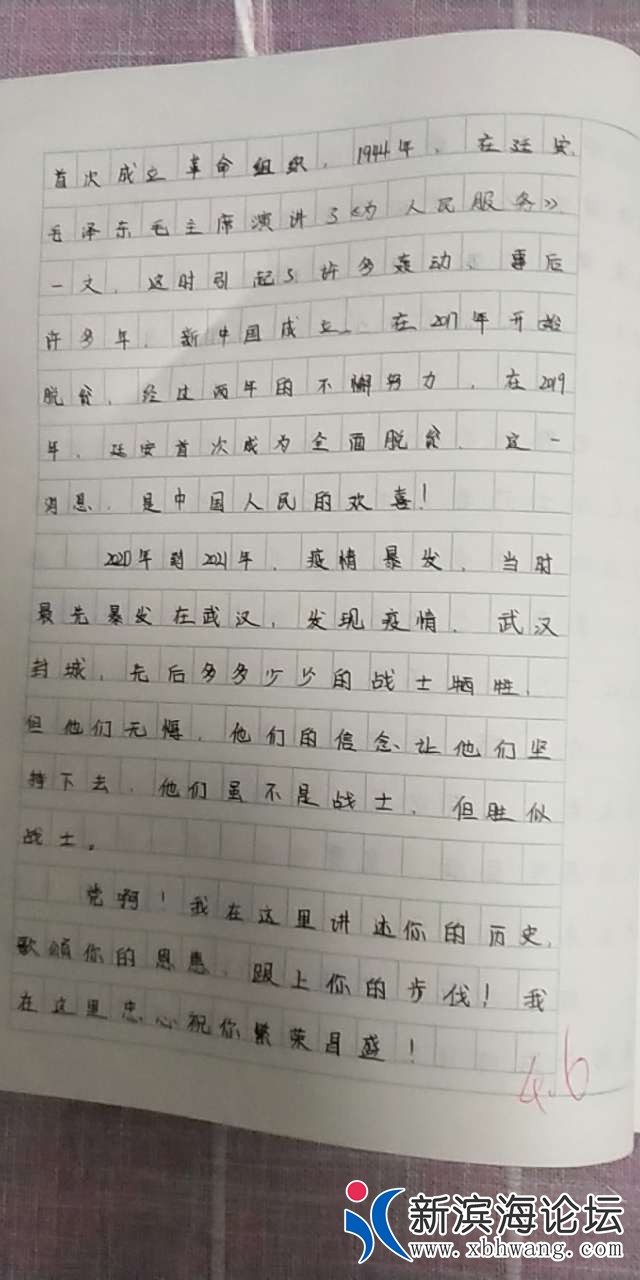 首次成立革命组织，1944年，在延安，
毛泽东毛主席演讲了《为人民服务》
一文，这时引起了许多轰动，事后
许多年，新中国成立，在2017年开始
脱贫，经过两年的不懈努力，在2019
年，延安首次成为全面脱贫，这一
消息，是中国人民的欢喜！
2020年到2021年，疫情暴发，当时
最先暴发在武汉，发现疫情，武汉
封城，先后多多少少的战士牺牲，
但他们无悔，他们的信念、让他们坚
持下去，他们虽不是战士，但胜似
战士。
党啊！我在这里讲述你的历史，
歌颂你的恩惠，跟上你的步伐！我
在这里忠心祝你繁荣昌盛！
4.6
新滨海论坛
www.xbhwang.com